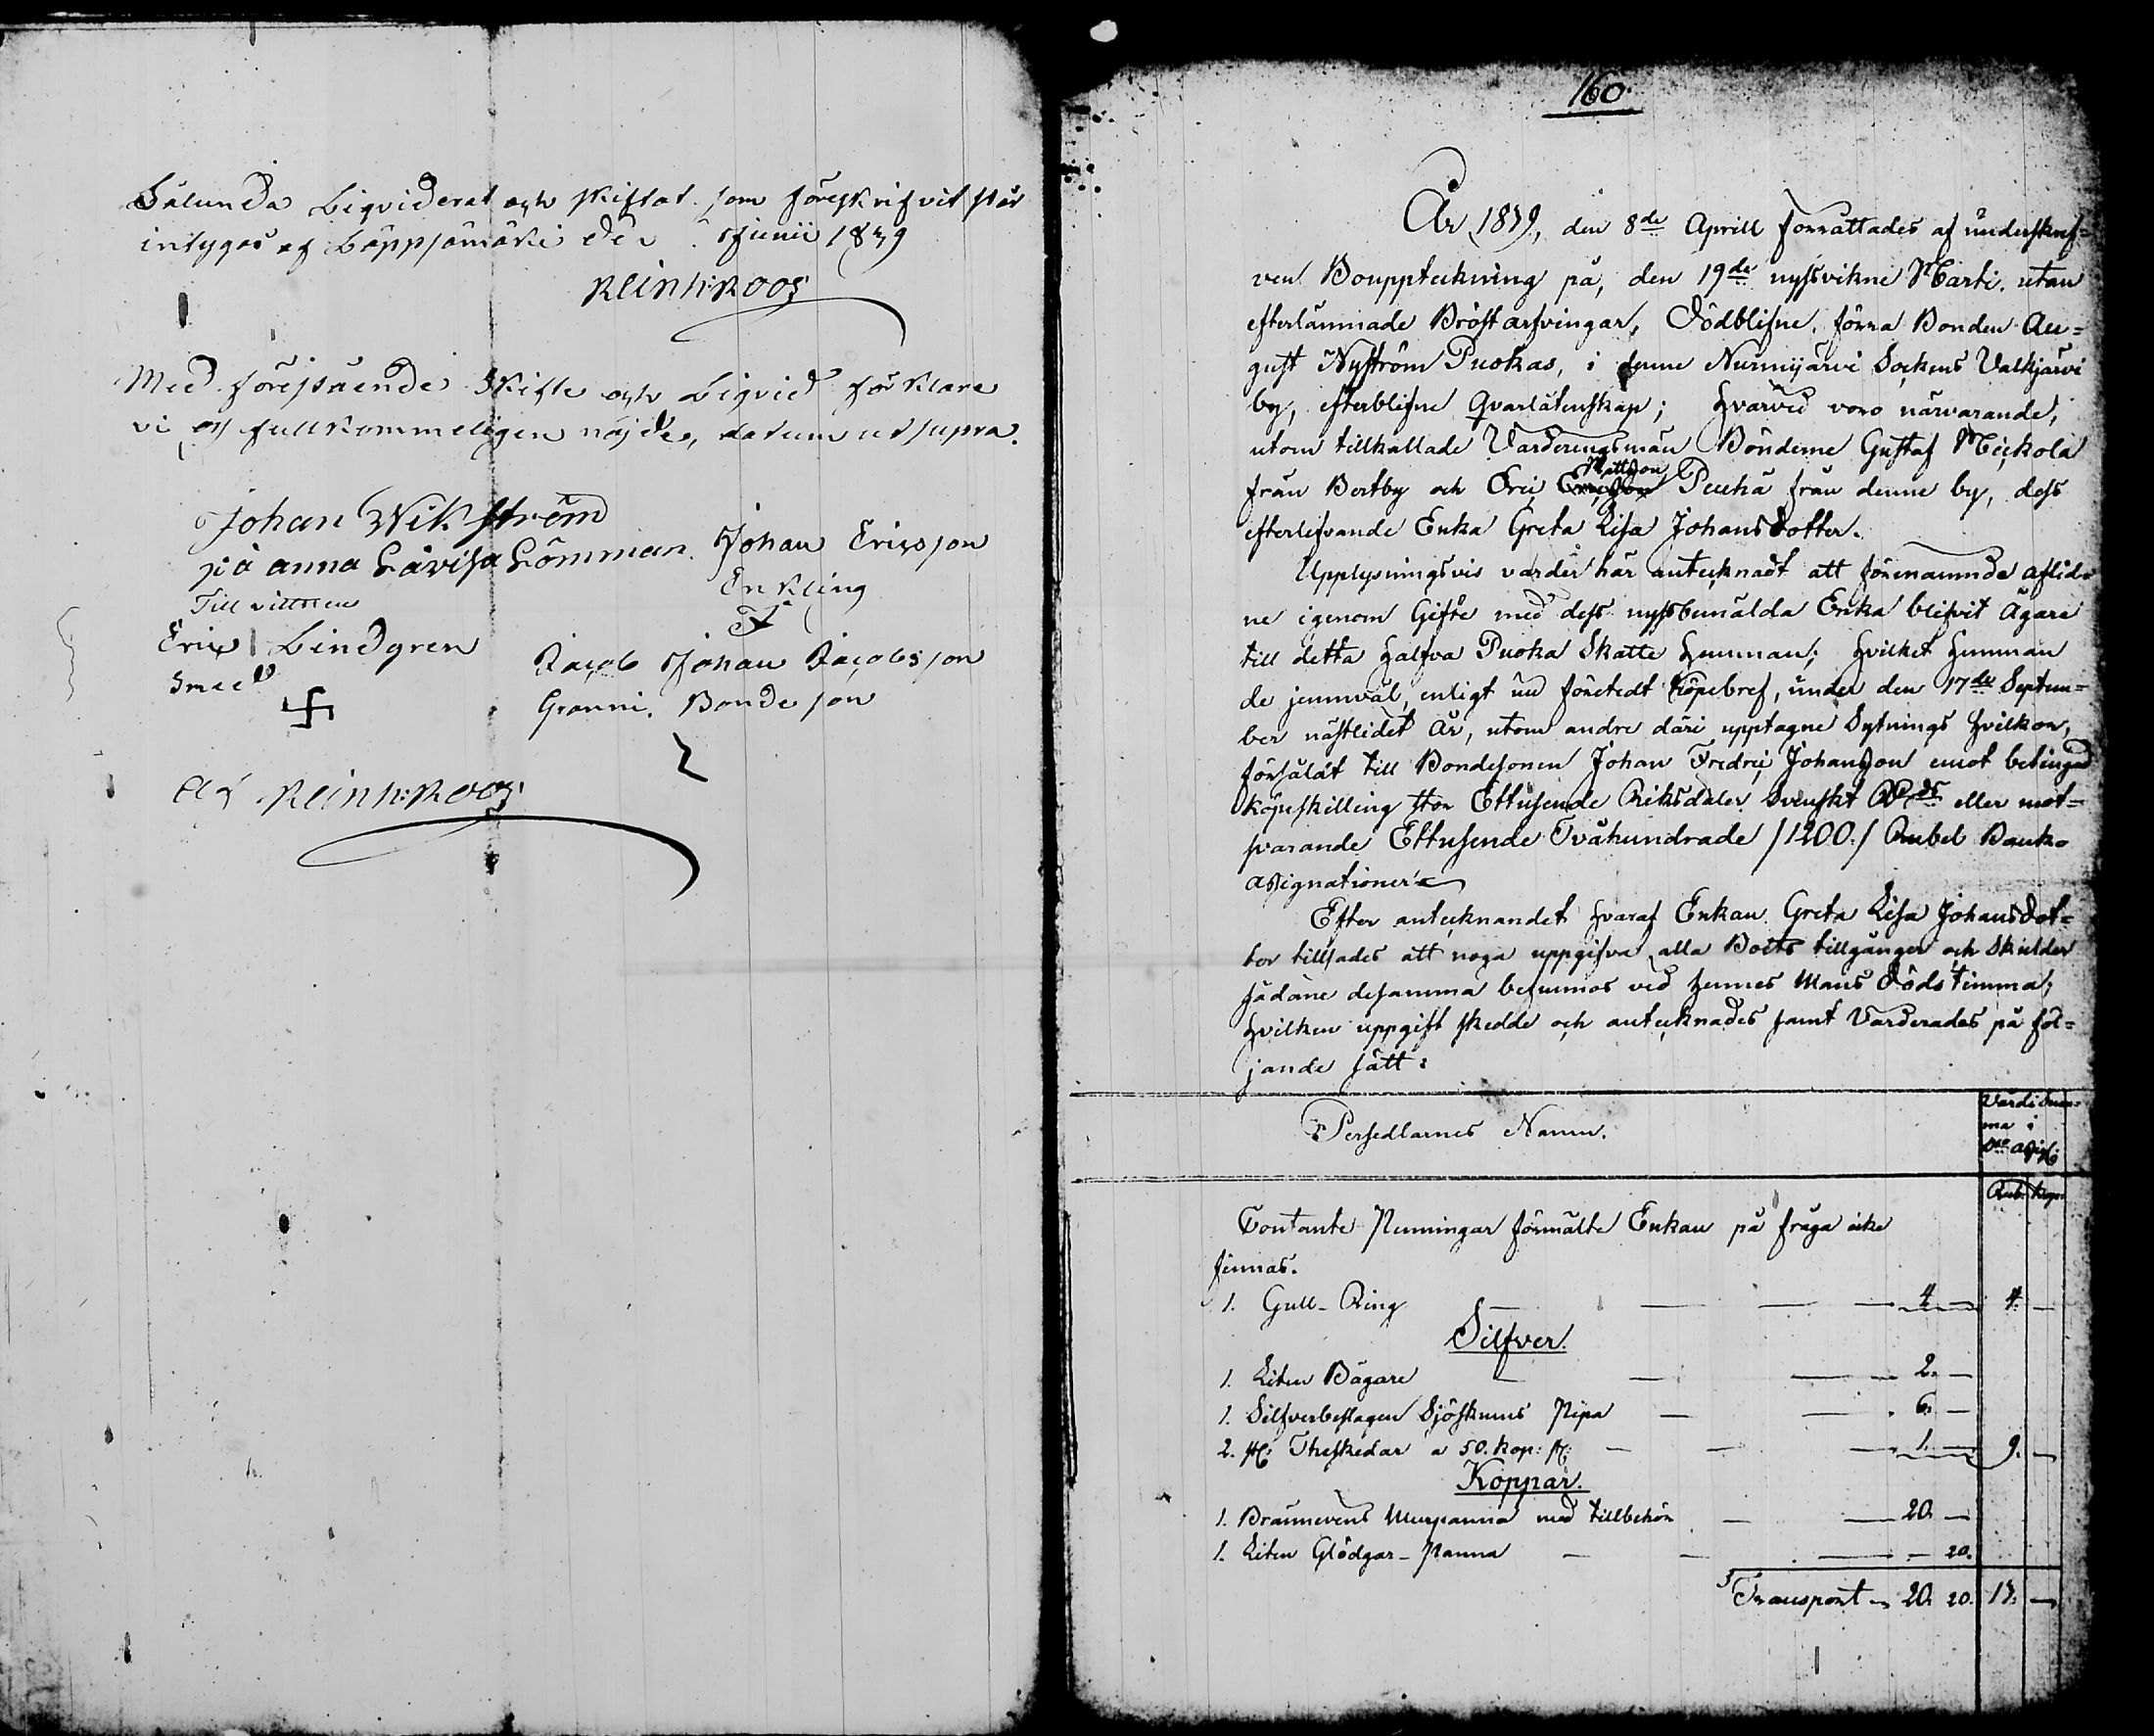 Sålunda Liqviderat och skiftat som föreskrifvit står
intygas af Loppjomäki den Junii 1839
Reinh: Roos
Med föreståënde Skifte och Liqvid förklare
vi oss fullkommeligen nöjde, datum ut supra.
Johan Wikström
på anna Låvisa Lömman. Johan Ericsson
Enkling
Till vittnen
Eric Lindgren
Jacob Johan Jacobsson
Smed
Granni. Bondeson
af Reinh: Roos
160.
År 1839, den 8de Aprill förrättades af underskref=
ven Bouppteckning på, den 19de nyssvikne Marti. utan
efterlämnade Bröstarfvingar, Dödblifne, förra Bonden Au=
gust Nyström Puokas, i denne Nurmijärvi Sockens Valkjärvi
by, efterblifne Qvarlåtenskap; hvarvid voro närvarande,
utom tillkallade Värderingsmän Bönderne Gustaf Mickola
Mattsson
från Bertby och Eric Ericsson Puuha från denne by, dess
efterlefvande Enka Greta Lisa Johansdotter.
Upplysningsvis varder här antecknadt att förenämnda aflid=
ne igenom Gifte med dess nyssbemälda Enka blifvit Ägare
till detta halfva Puoka Skatte Hemman; hvilket Hemman
de jemnväl, enligt nu företedt Köpebref, under den 17de Septem=
ber nästlidet År, utom andre däri upptagne Sytnings Vilkor,
försåldt till Bondesonen Johan Fredric Johansson emot betingad
köpeskilling stor Ettusende Riksdaler Svenskt Rgds eller mot=
svarande Ettusende Tvåhundrade /1200./ Rubel Banko
assignationer.
Efter antecknandet hvaraf Enkan Greta Lisa Johansdot=
ter tillsades att noga uppgifva alla Boets tillgånger och Skulder
sådane desamma befunnos vid hennes Mans Dödstimma;
hvilken uppgift skedde och antecknades samt Värderades på föl=
jande sätt:
Persedlarnes Namn.
Värdi Sum=
ma i
Bco assig:
Rub: Kop:
Contante Penningar förmälte Enkan på fråga icke
finnas.
1. Gull-Ring — — — — 4. — 4. —
Silfver.
1. Liten Bägare — — — — 2. —
1. Silfverbeslagen Sjöskums Pipa — — 6. —
2. st: Theskedar a 50. kop: st: — — — 1. — 9. —
Koppar.
1. Brännevins Murpanna med tillbehör — — 20. —
1. Liten Glödgar-Panna — — — — 20.
Transport — 20. 20. 13. —